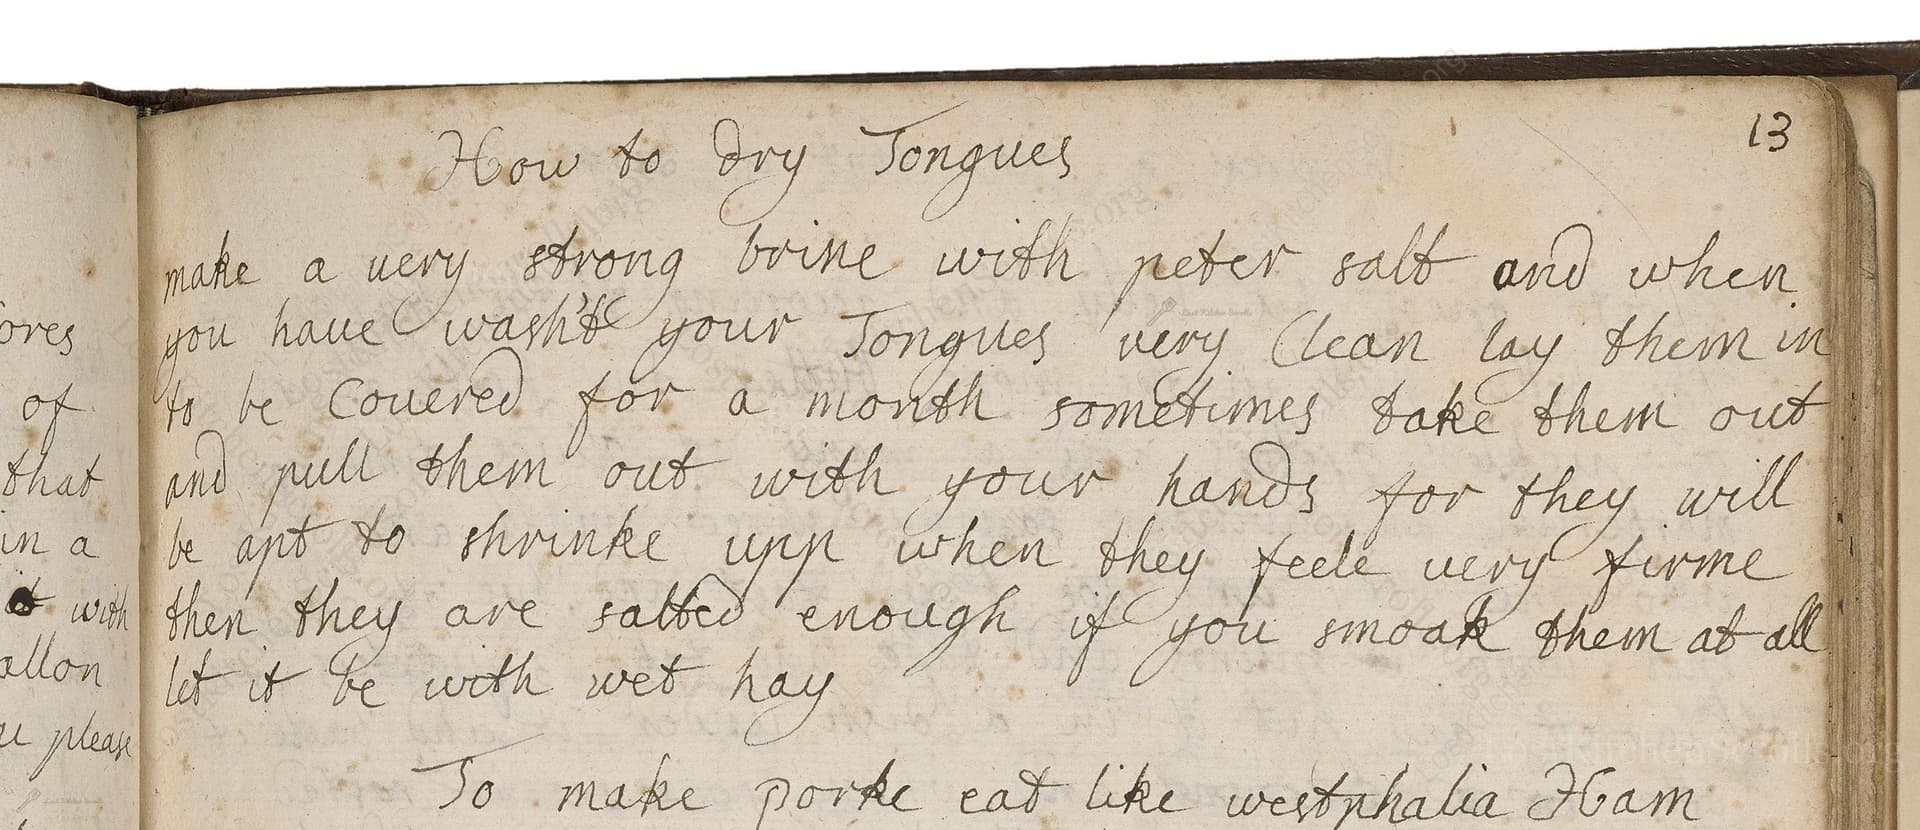 13
How to dry Tongues
make a very strong brine with peter salt and when
you have wash't your Tongues very Clean lay them in
to be Couered for a month sometimes take them out
and pull them out with your hands for they will
be apt to shrinke upp when they feele very firme
then they are salted enough if you smoak them at all
let it be with wet hay
To make porke eat like westphalia Ham
ores
of
that
in a
with
allon
please